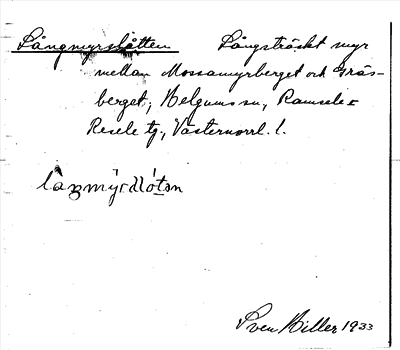 Långmyrslåtten Långsträckt myr
mellan Mossamyrberget och Gräs-
berget, Helgums sn, Ramsele =
Resele tg., Västernorrl. l.
Sven Hiller 1933